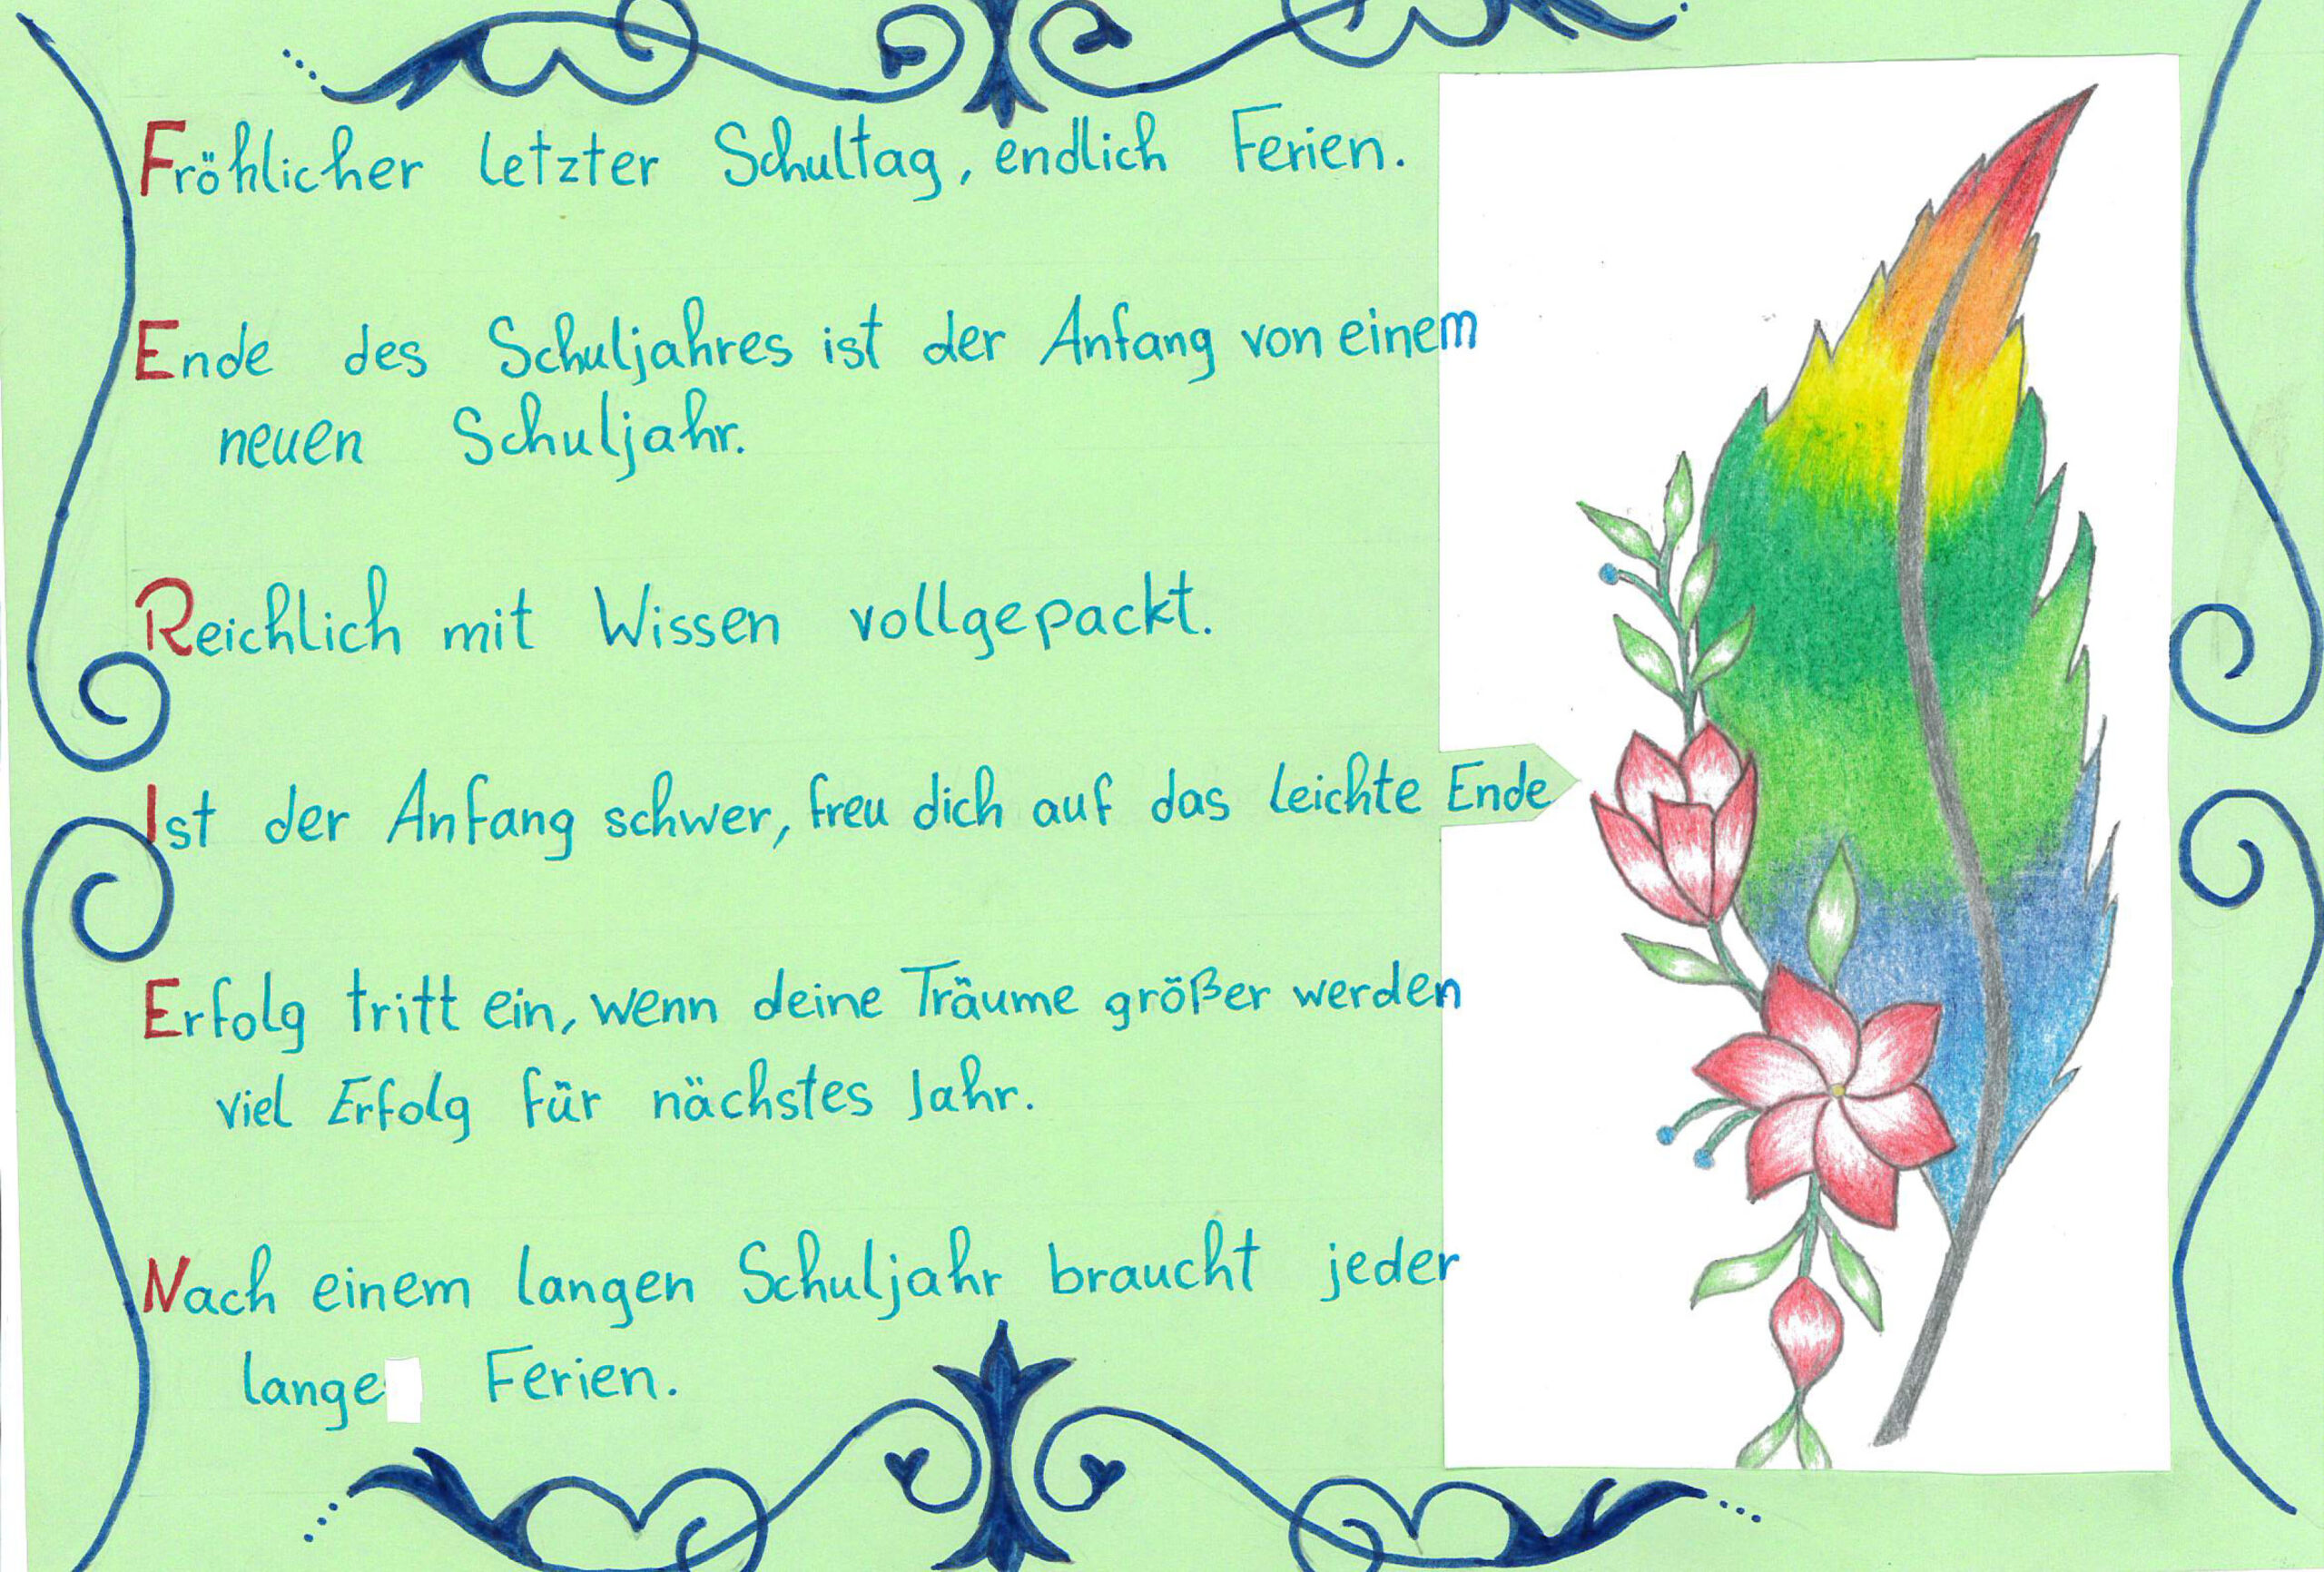 Fröhlicher letzter Schultag, endlich Ferien.
Ende des Schuljahres ist der Anfang von einem
neuen Schuljahr.
Reichlich mit Wissen vollgepackt.
Ist der Anfang schwer, freu dich auf das leichte Ende
Erfolg tritt ein, wenn deine Träume größer werden
viel Erfolg für nächstes Jahr.
Nach einem langen Schuljahr braucht jeder
lange Ferien.